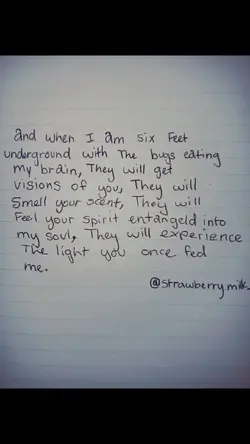 and when I am six feet
underground with The bugs eating
my brain, They will get
visions of you, They will
Smell your scent, They will
Feel your spirit entangeld into
my soul, They will experience
The light you once fed
me.
@strawberry milk.